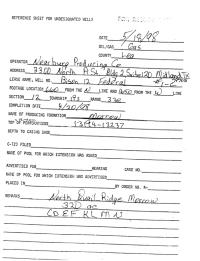 REFERENCE SHEET FOR UNDESIGNATED WELLS
DATE 5/18/98
OIL/GAS Gas
COUNTY Lea
OPERATOR Nearburg Producing Co
ADDRESS 3300 North A St Bldg 2 Suite 120 Midland Tx
LEASE NAME, WELL NO. Bison 12 Federal #1-C
FOOTAGE LOCATION 660 FROM THE N LINE AND FROM THE W LINE
SECTION 12 TOWNSHIP 19S RANGE 33E
COMPLETION DATE 4/20/98
NAME OF PRODUCING FORMATION Morrow
TOP OF PERFORATIONS 13194-13237
DEPTH TO CASING SHOE
C-123 FILED
NAME OF POOL FOR WHICH EXTENSION WAS ASKED
ADVERTISED FOR HEARING CASE NO.
NAME OF POOL FOR WHICH EXTENSION WAS ADVERTISED
PLACED IN BY ORDER NO. R-
REMARKS
North Quail Ridge Morrow
320 ac
CDEF KLMN